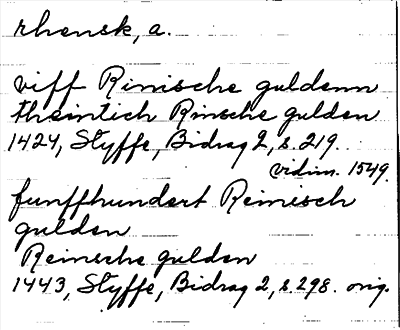 rhensk, a.
viff Rinische guldenn
theintich Rinsche gulden
1424, Styffe, Bidrag 2, s. 219.
vidim. 1549.
funffhundert Reinisch
gulden
Reinsche gulden
1443, Styffe, Bidrag 2, s. 298. orig.